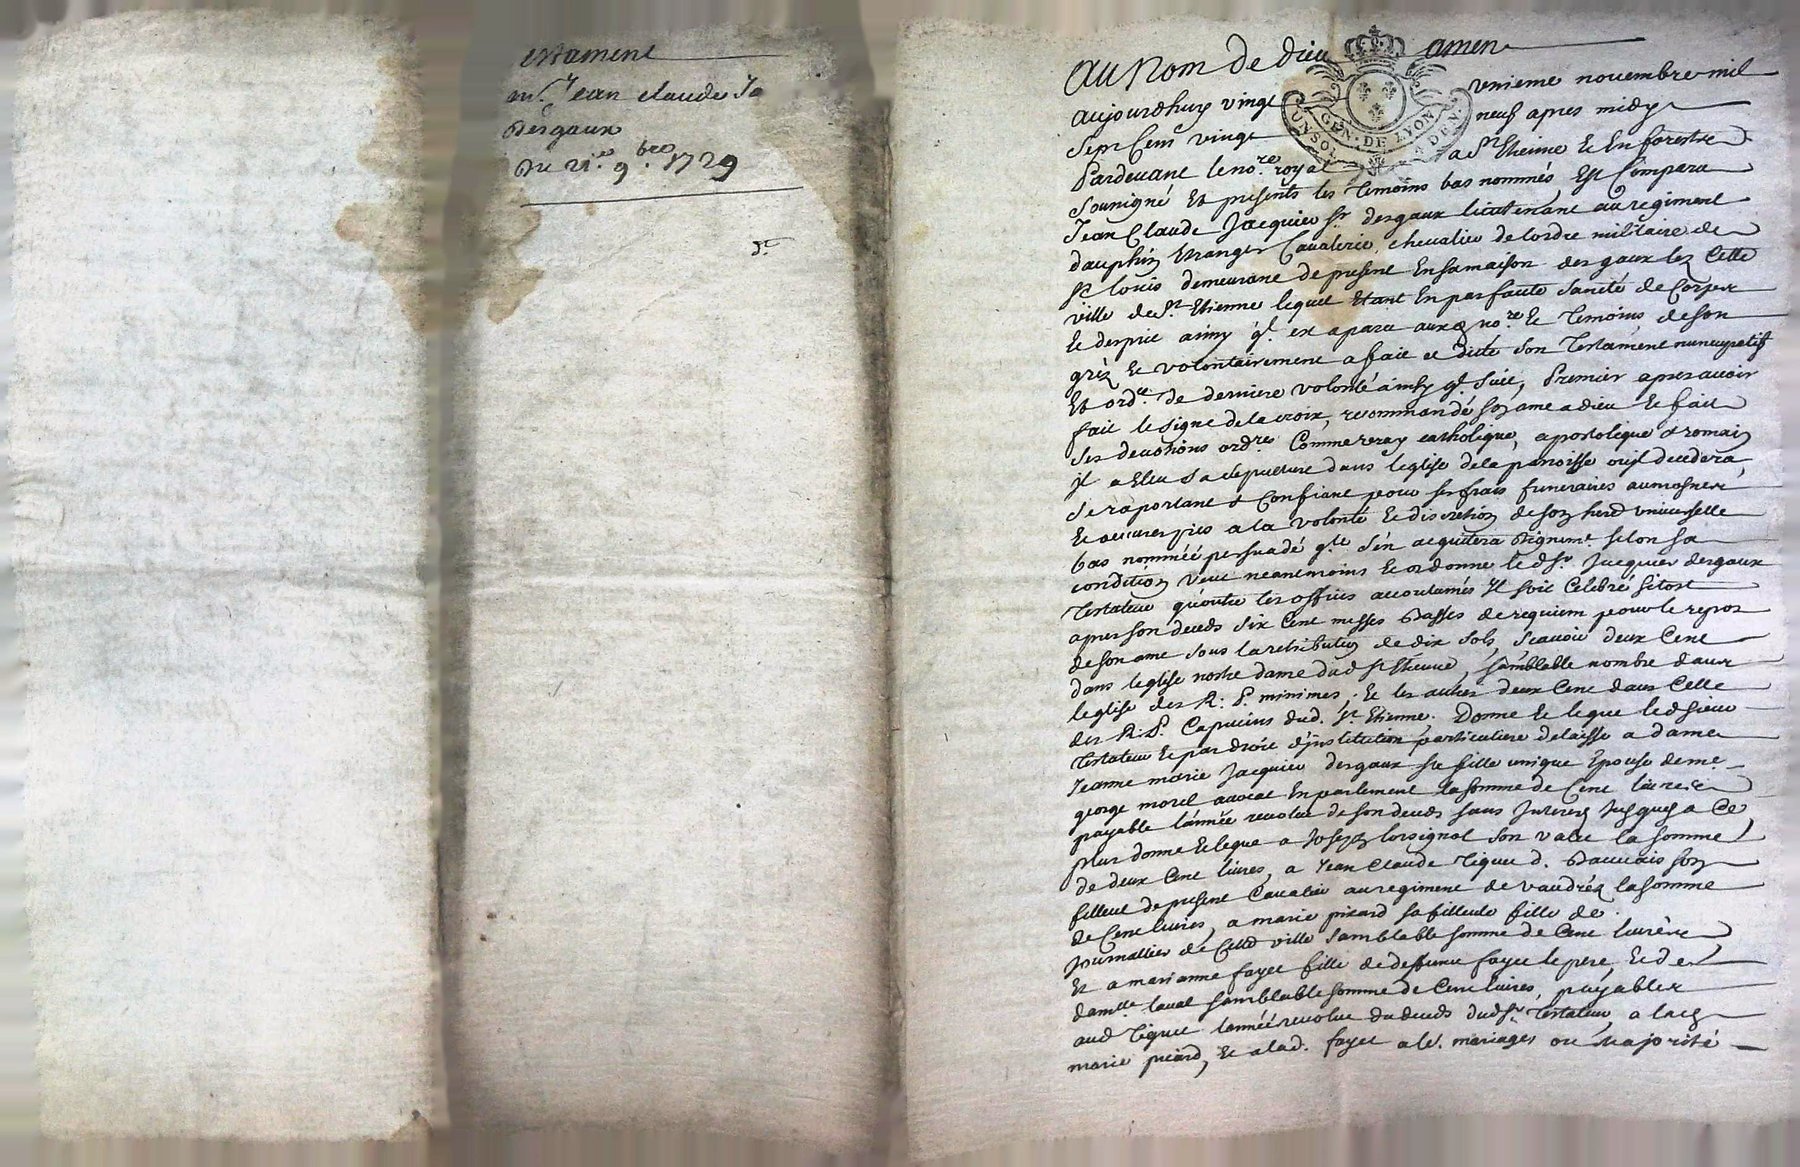 estament
Jean claude Ja
Desgaux
Du 21.e 9.bre 1729
Au Nom de dieu amen
aujourdhuy vingt unieme novembre mil
Sept Cens vingt neuf apres midy
Pardevant le no.re royal a St Etienne Et En forestz
Soussigné Et presents les Temoins bas nommés, Est Comparu
Jean Claude Jacquier Sr. desgaux lieutenant au regiment
dauphin Etranger Cavalerie, chevalier de lordre militaire de
St louis demeurant de present En sa maison des gaux lez Cette
ville de St. Etienne lequel Etant En parfaite Santé de Corps
Et desprit ainsy ql. ex aparu aux no.re Et Temoins, de son
gréz Et volontairement a fait et dicté son Testament nuncupatif
Et ord.ce de derniere volonté ainsy ql. Suit, Premier apres avoir
fait le signe de la croix, recommandé son ame a dieu Et fait
Ses devotions ord.res Comme vray catholique, apostolique & romain
Jl a Eleu Sa sepulture dans leglise de la parroisse ou jl decedera,
Se raportant & Confiant pour ses frais funeraires aumosnes
Et oeuvres pies a la volonté Et discretion de son hered. universelle
bas nommée persuadé q.lle s'en acquitera dignem.t selon sa
condition veut neantmoins Et ordonne led. Sr. Jacquier desgaux
Testateur quoutre les offices accoutumés Jl soit Celebré sitost
apres son deceds Six Cent messes Basses de requiem pour le repos
de son ame sous la retribution de dix sols, Scavoir deux Cent
dans leglise nostre dame dud. St Etienne, semblable nombre dans
leglise des R: P. minimes. Et les autres deux Cent dans Celle
des R. P. Capucins dud. St. Etienne. Donne Et legue led. sieur
Testateur Et par droit d'institution particuliere delaisse a dame
Jeanne marie Jacquier desgaux sa fille unique Epouse de me.
george morel avocat En parlement la somme de Cent livres
payable lannée revolue de son deceds sans Interets Jusques a Ce,
plus donne Et legue a Joseph lorsignol son valet la somme
de deux Cent livres, a Jean Claude Tiquet d. Bauvais son
filleul de present Cavalier au regiment de vaudréz la somme
de Cent livres, a marie picard sa filleule fille de .
Journallier de Cette ville semblable somme de Cent livres
Et a marianne fayet fille de deffunt fayet le pere, Et de
dam.lle laval semblable somme de Cent livres, payables
aud Tiquet lannée revolue du deceds dud. Sr. Testateur, a lad.
marie picard, Et a lad. fayet a le.s mariages ou majorité
GEN. DE LYON